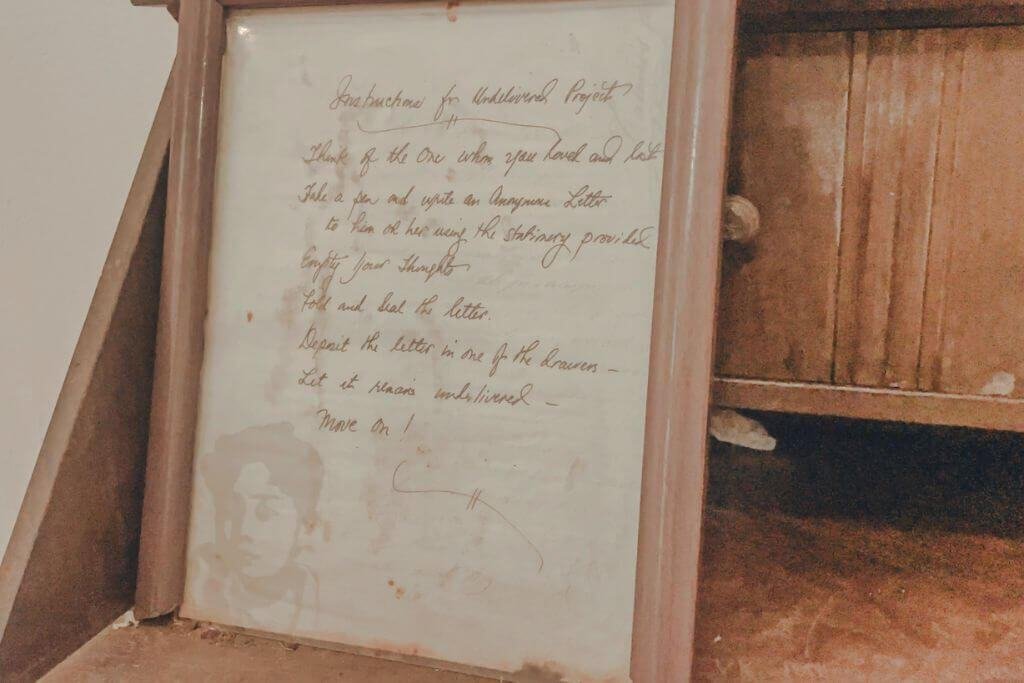 Instructions for Undelivered Project
Think of the One whom you loved and lost
Take a pen and write an Anonymous Letter
to him or her using the stationery provided
Empty your Thoughts
Fold and Seal the letter.
Deposit the letter in one of the drawers –
Let it remain undelivered –
Move on!